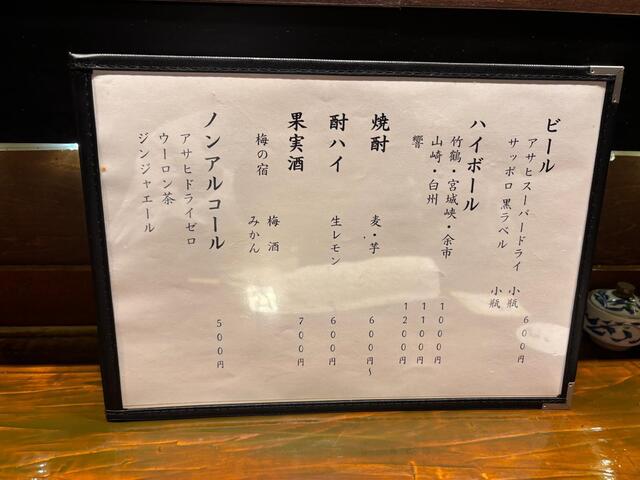 ビール
アサヒスーパードライ 小瓶 600円
サッポロ黒ラベル 小瓶
ハイボール
竹鶴・宮城峡・余市 1000円
山崎・白州 1100円
響 1200円
焼酎
麦・芋 600円〜
酎ハイ
生レモン 600円
果実酒 700円
梅の宿 梅酒
みかん
ノンアルコール 500円
アサヒドライゼロ
ウーロン茶
ジンジャエール